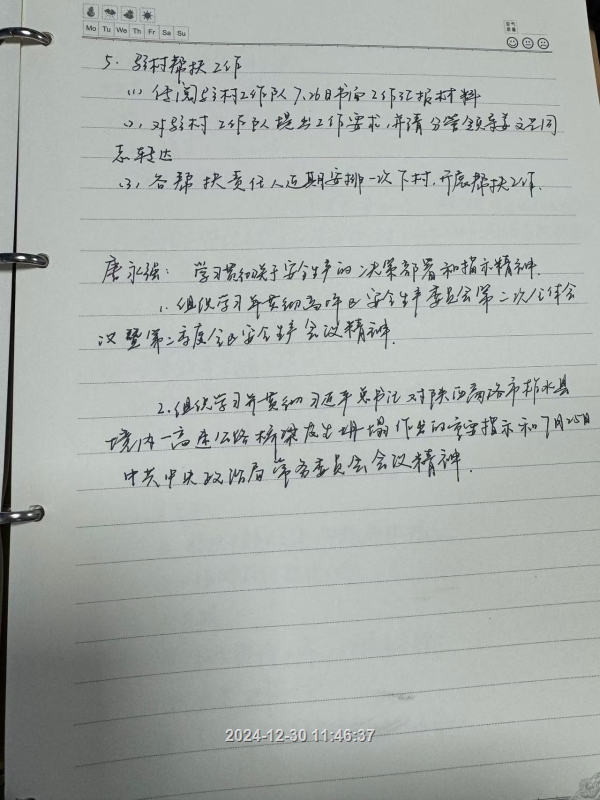 Mo Tu We Th Fr Sa Su
空气
质量
5、驻村帮扶工作
(1)、传阅驻村工作队7.26日书面工作汇报材料
(2)、对驻村工作队提出工作要求,并请分管领导姜文同
志转达
(3)、各帮扶责任人近期安排一次下村,开展帮扶工作.
唐永强:学习贯彻关于安全生产的决策部署和指示精神.
1、组织学习并贯彻区安全生产委员会第二次全体会
议暨第三季度全区安全生产会议精神.
2、组织学习并贯彻习近平总书记对陕西商洛市柞水县
境内一高速公路桥梁发生坍塌作出的重要指示和7月25日
中共中央政治局常务委员会会议精神.
2024-12-30 11:46:37